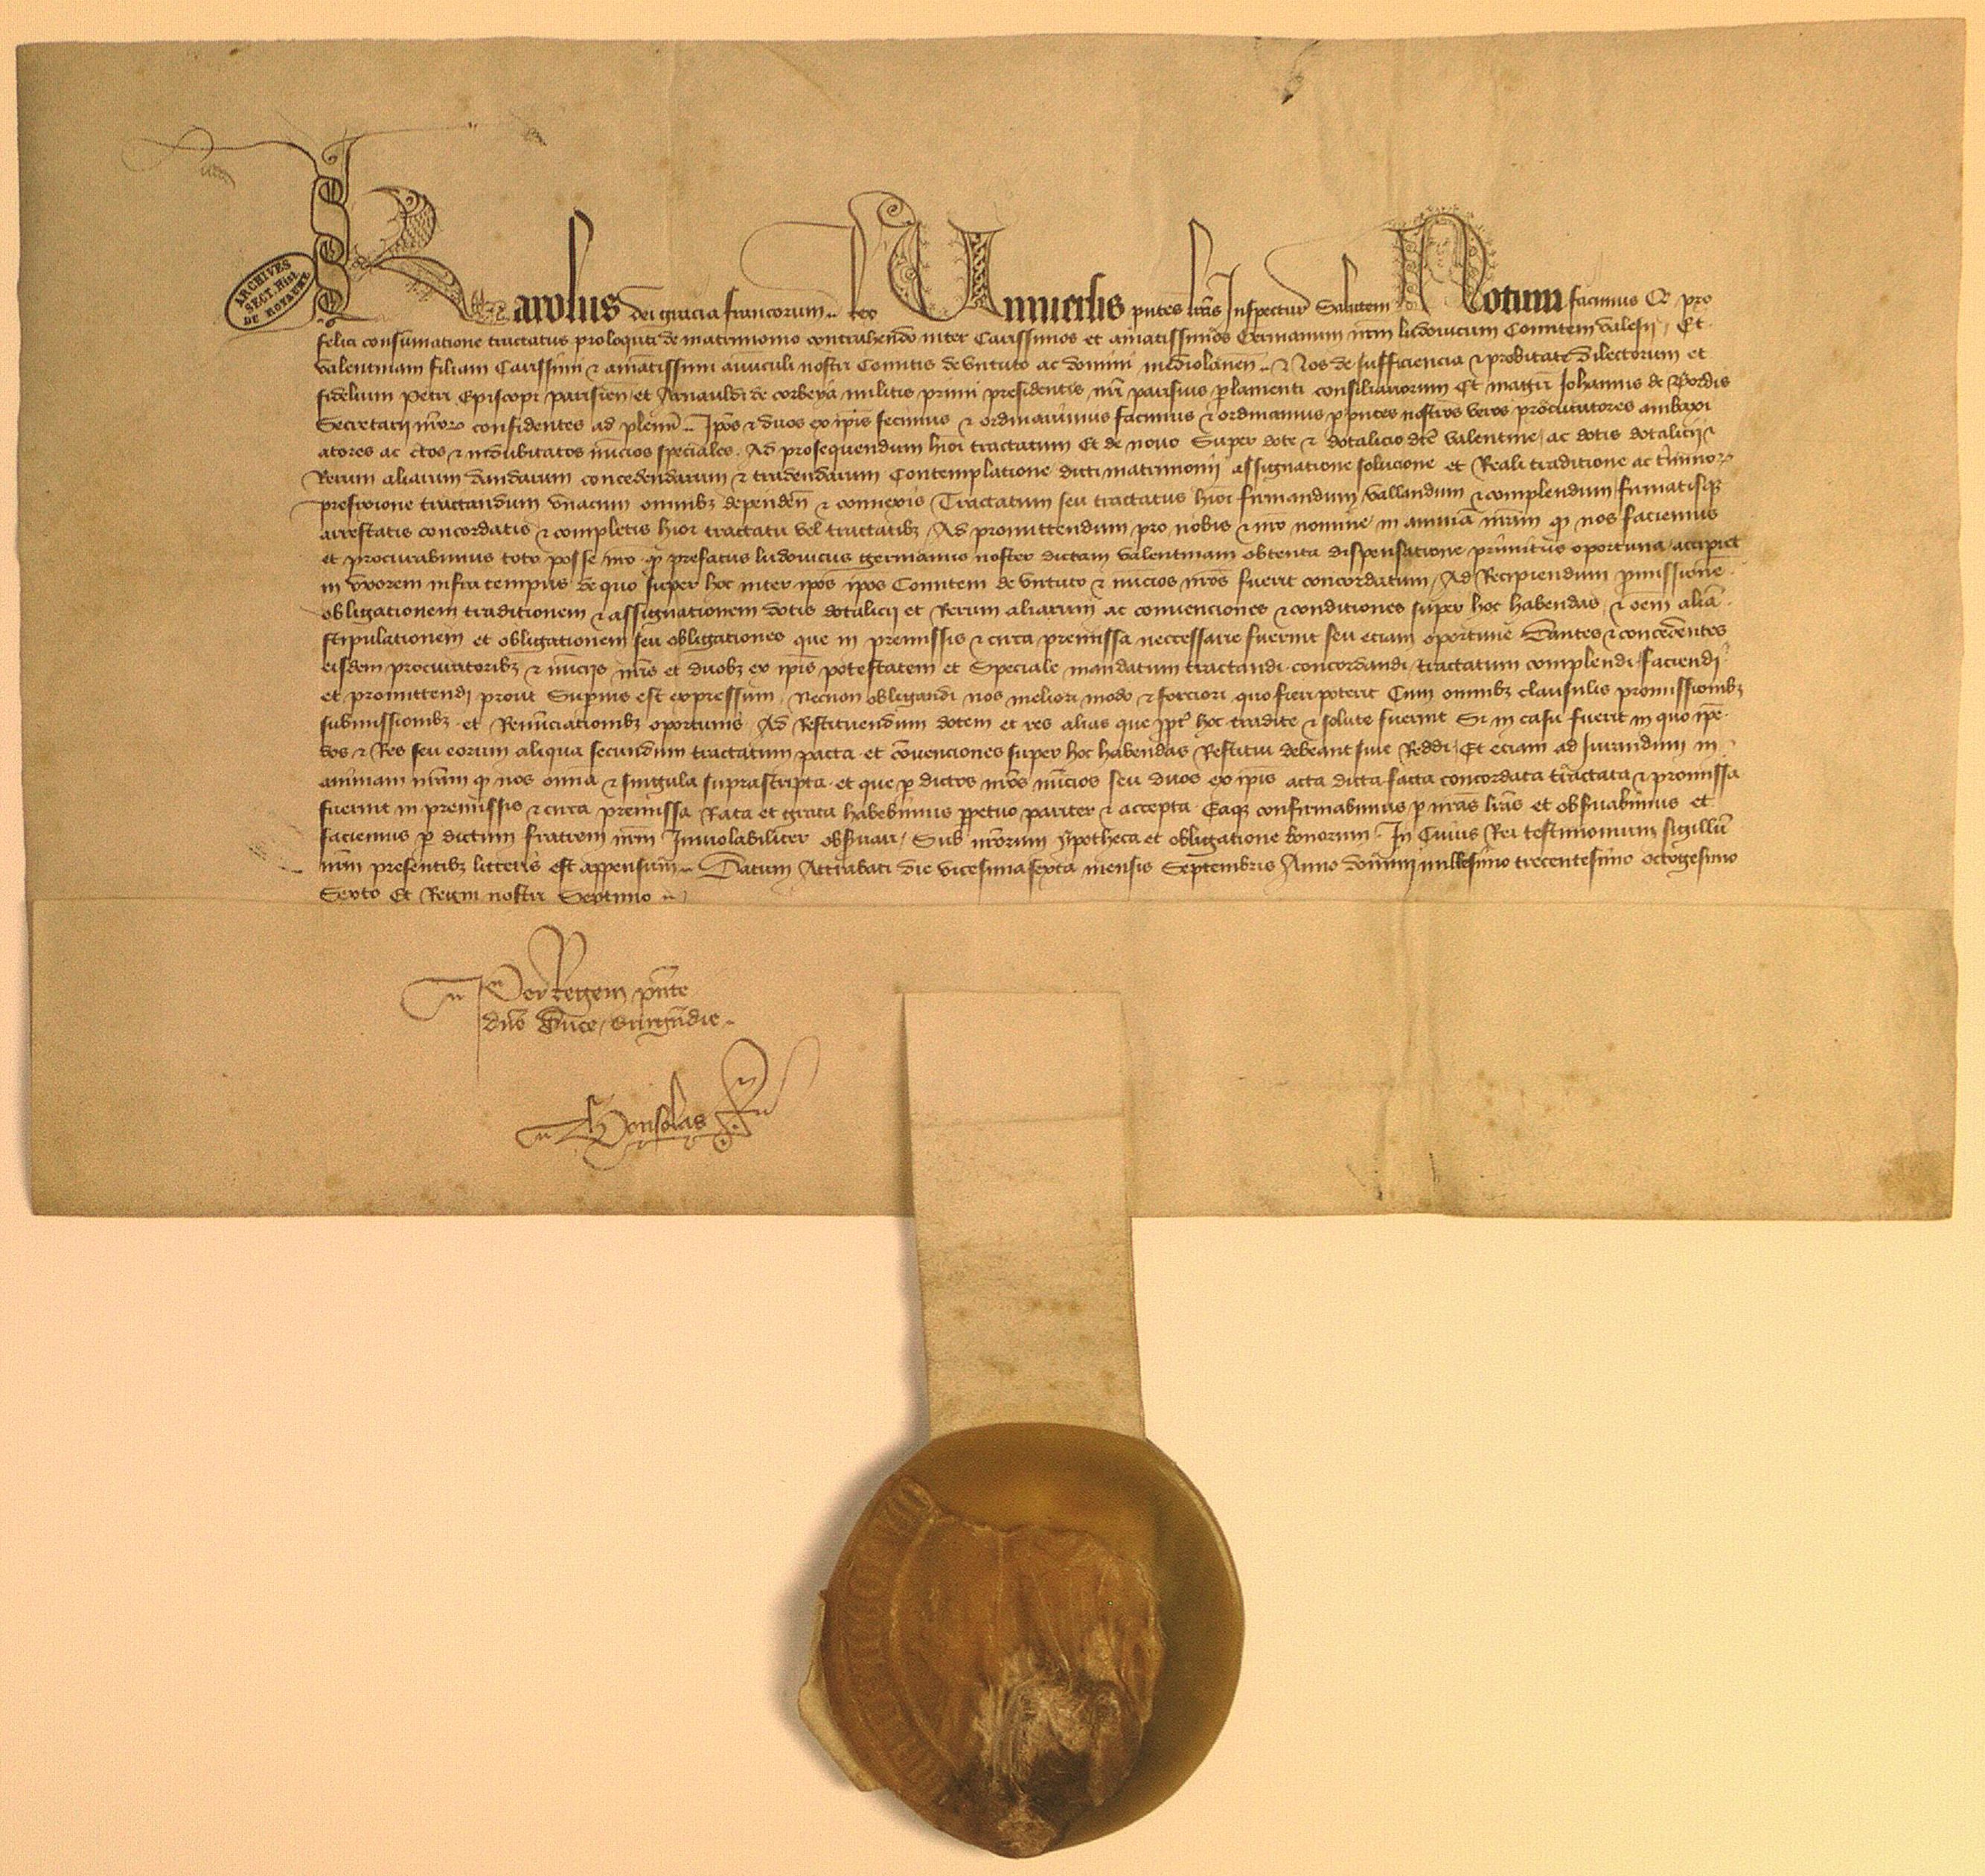 ARCHIVES
SECT. HIST.
DU ROYAUME
Karolus dei gracia francorum Rex Universis pntes lras Inspecturis Salutem Notum facimus Qr pro
felici consumatione tractatus proloquti de matrimonio contrahendo inter Carissimos et amatissimos Germanum nrm ludovicum Comitem valesij Et
valentinam filiam Carissimi & amatissimi avunculi nostri Comitis de virtuto ac domini mediolanen Nos de sufficiencia & probitate dilectorum et
fidelium Petri Episcopi parisien et Arnauldi de corbeya militis primi presidentis nri parisius parlamenti consiliariorum Et magri Johannis de Bordis
Secretarij nror confidentes ad plenum Ipos & duos ex ipis fecimus & ordinavimus facimus & ordinamus p pntes nostros veros procuratores ambaxi
atores ac ctos & indubitatos nuncios speciales Ad prosequendum hmoi tractatum Et de novo Super dote & dotalicio dce valentine ac dotis dotalicij &
Rerum aliarum dandarum concedendarum & tradendarum Contemplatione dicti matrimonij assignatione solucione et Reali traditione ac tminor
prefixione tractandum unacum omnibz dependen & connexis Tractatum seu tractatus hmoi firmandum vallandum & complendum firmatisqz
arrestatis concordatis & completis hmoi tractatu vel tractatibz Ad promittendum pro nobis & nro nomine in animam nram q nos faciemus
et procurabimus toto posse nro q prefatus ludovicus germanus noster dictam valentinam obtenta dispensatione primitus oportuna accipiet
in uxorem infra tempus de quo super hoc inter ipos ipos Comitem de virtuto & nuncios nros fuerit concordatum Ad Recipiendum pmissione
obligationem traditionem & assignationem dotis dotalicij et Rerum aliarum ac convenciones & conditiones super hoc habendas & oem alia
stipulationem et obligationem seu obligationes que in premissis & circa premissa neccessarie fuerint seu eciam oportune Dantes & concedentes
eisdem procuratoribz & nuncijs nris et duobz ex ipis potestatem et Speciale mandatum tractandi concordandi tractatum complendi faciendi
et promittendi prout Superius est expressum Necnon obligandi nos meliori modo & forciori quo fieri poterit Cum omnibz clausulis promissionibz
submissionibz et Renunciationibz oportunis Ad Restituendum dotem et res alias que ppt hoc tradite & solute fuerint Si in casu fuerit in quo ipe
dos & Res seu eorum aliqua secundum tractatum pacta et convenciones super hoc habendas Restitui debeant sive Reddi Et eciam ad Jurandum in
animam nram q nos omnia & singula suprascripta et que p dictos nros nuncios seu duos ex ipis acta dicta facta concordata tractata & promissa
fuerint in premissis & circa premissa Rata et grata habebimus ppetuo pariter & accepta Eaqz confirmabimus p nras lras et obsvabimus et
faciemus p dictum fratrem nrm Inviolabiliter obsvari Sub nrorum ypotheca et obligatione bonorum In Cuius Rei testimonium sigillu
nrm presentibz litteris est appensum Datum Attrabati die vicesimasexta mensis Septembris Anno domini millesimo trecentesimo octogesimo
Sexto Et Regni nostri Septimo
Per Regem pnte
dno Duce Burgundie